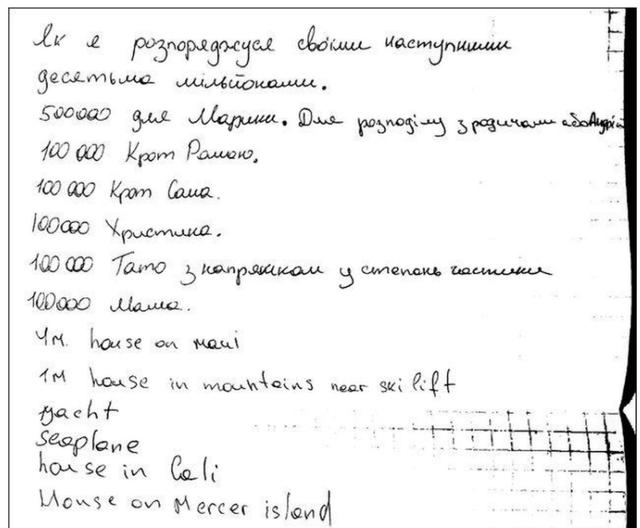 Як я розпоряджуся своїми наступними
десятьма мільйонами.
500000 для Марики. Для розподілу з родичами або
100 000 Крот Рамаю.
100 000 Крот Саша.
100000 Христина.
100 000 Тато з напрямком у степань частики
100000 Мама.
4м. house on maui
1м house in mountains near ski lift
yacht
seaplane
house in Cali
House on Mercer island